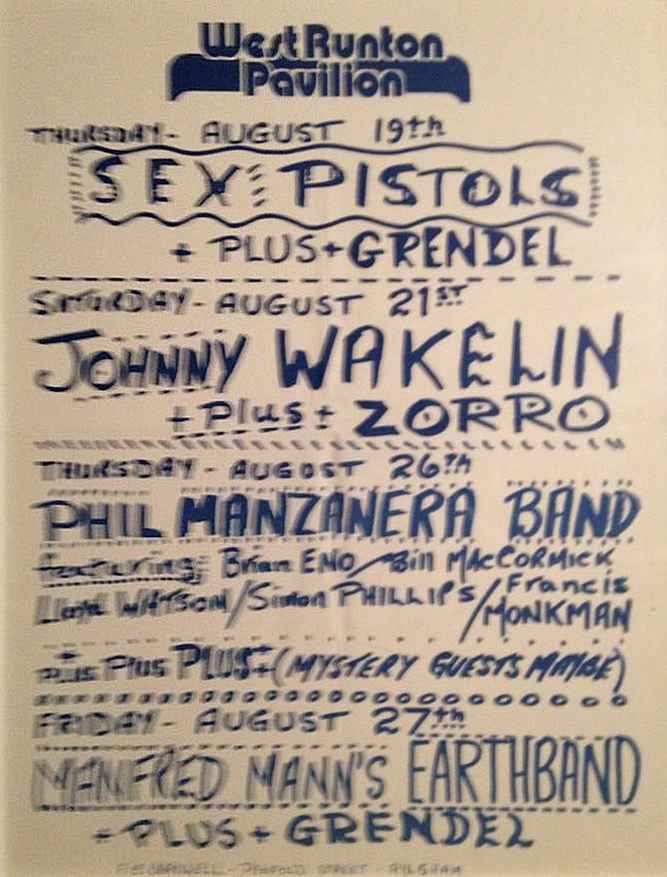 West Runton
Pavilion
THURSDAY - AUGUST 19th
SEX PISTOLS
+ PLUS + GRENDEL
SATURDAY - AUGUST 21ST
JOHNNY WAKELIN
+ Plus + ZORRO
THURSDAY - AUGUST 26TH
PHIL MANZANERA BAND
featuring; Brian ENO / Bill MACCORMICK
Lloyd WATSON / Simon PHILLIPS / Francis MONKMAN
+ PLUS Plus PLUS + (MYSTERY GUESTS MAYBE)
FRIDAY - AUGUST 27th
MANFRED MANN'S EARTHBAND
+ PLUS + GRENDEL
STREET - AYLSHAM